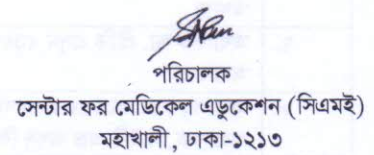 পরিচালক
সেন্টার ফর মেডিকেল এডুকেশন (সিএমই)
মহাখালী, ঢাকা-১২১৩